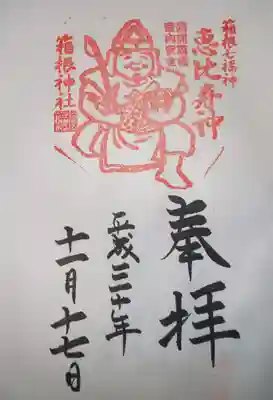 箱根七福神
恵比寿神
箱根神社
奉拝
平成三十年
十一月十七日